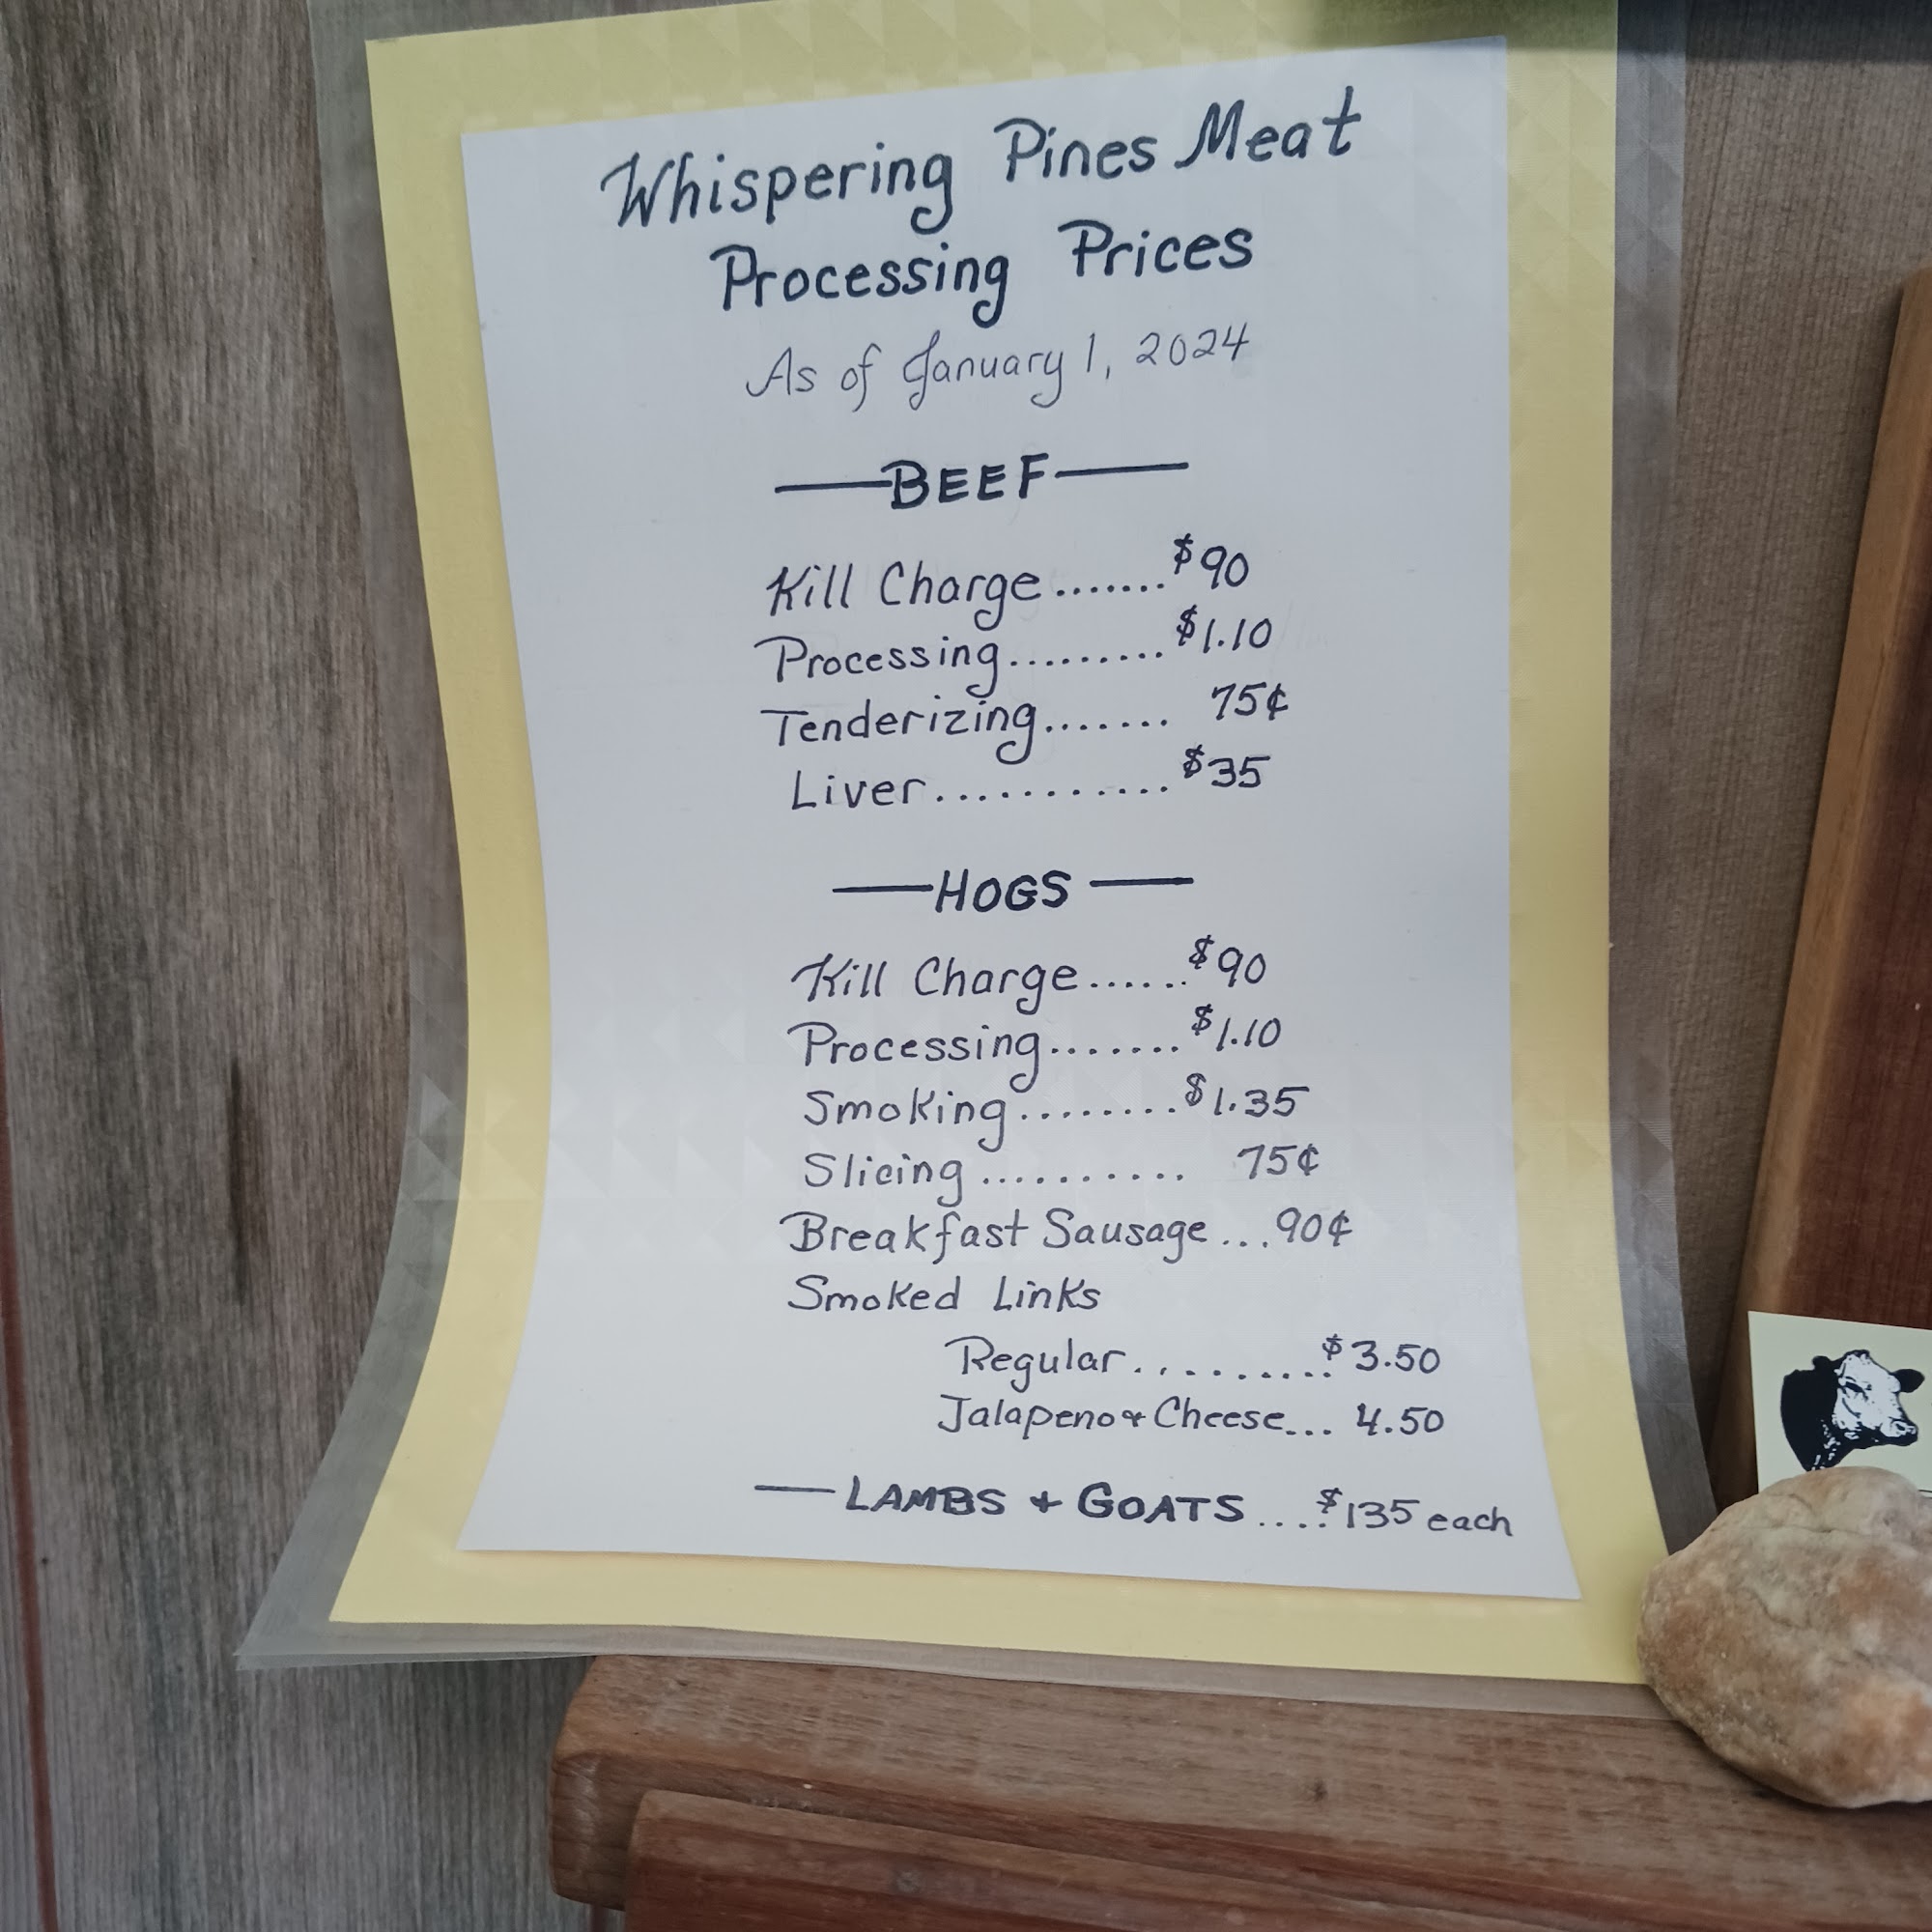 Whispering Pines Meat
Processing Prices
As of January 1, 2024
—BEEF—
Kill Charge.......$90
Processing.........$1.10
Tenderizing....... 75¢
Liver...........$35
—HOGS—
Kill Charge......$90
Processing.......$1.10
Smoking........$1.35
Slicing.......... 75¢
Breakfast Sausage...90¢
Smoked Links
Regular.........$3.50
Jalapeno & Cheese... 4.50
—LAMBS & GOATS....$135 each